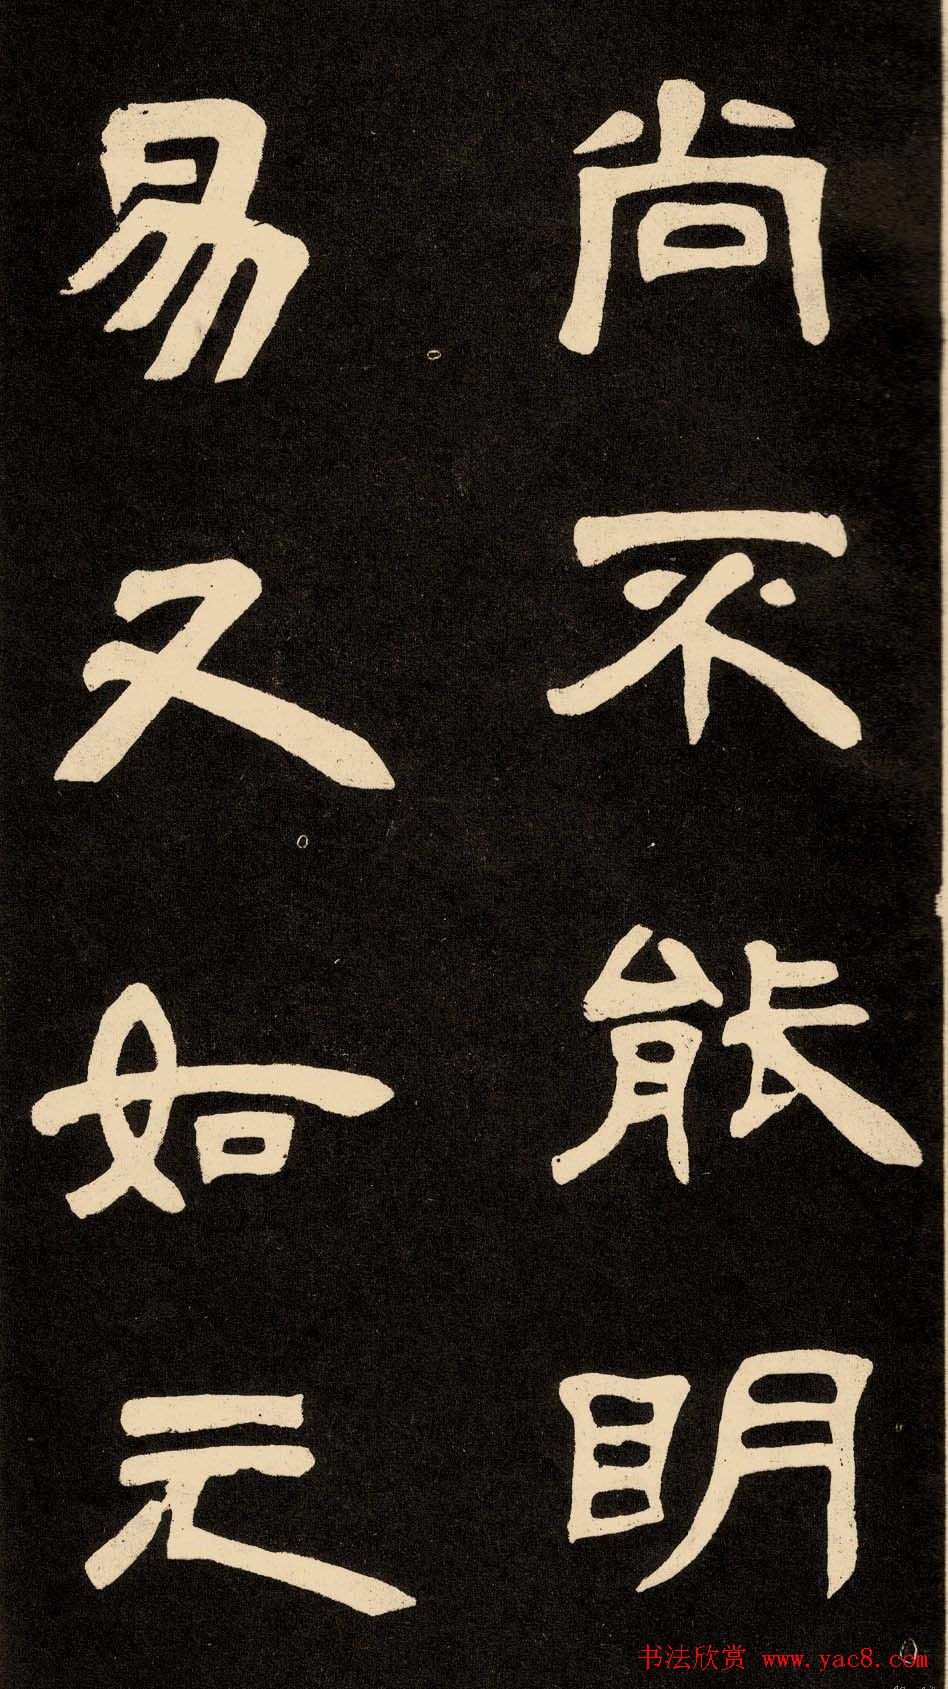 尚不能明
易又如元
书法欣赏 www.yac8.com